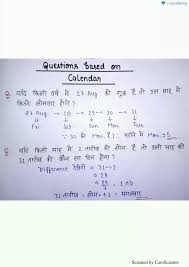 Questions Based on
Calendar
Q यदि किसी वर्ष में 27 Aug को शुक्र है तो उस माह में
कितने सोमवार होंगे ?
27 Aug → 28 → 29 → 30 → 31
Fri Sat Sun Mon Tue
∵ 30 को Mon है। महीने में Mon → 5
Q यदि किसी माह में 2 तारीख को सोम है तो उसी माह की
31 तारीख को कौन सा दिन होगा ?
Difference देखेंगे → 31-2
→ 29
→ 29/7 = 1 OD
31 तारीख = सोम + 1 = मंगलवार
Scanned by CamScanner